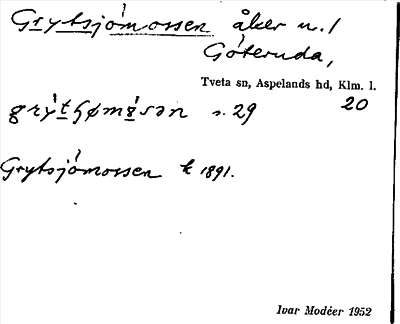 Grytsjómossen åker n. 1
Góteruda,
Tveta sn, Aspelands hd, Klm. l.
20
s. 29
Grytsjómossen k 1891.
Ivar Modéer 1952